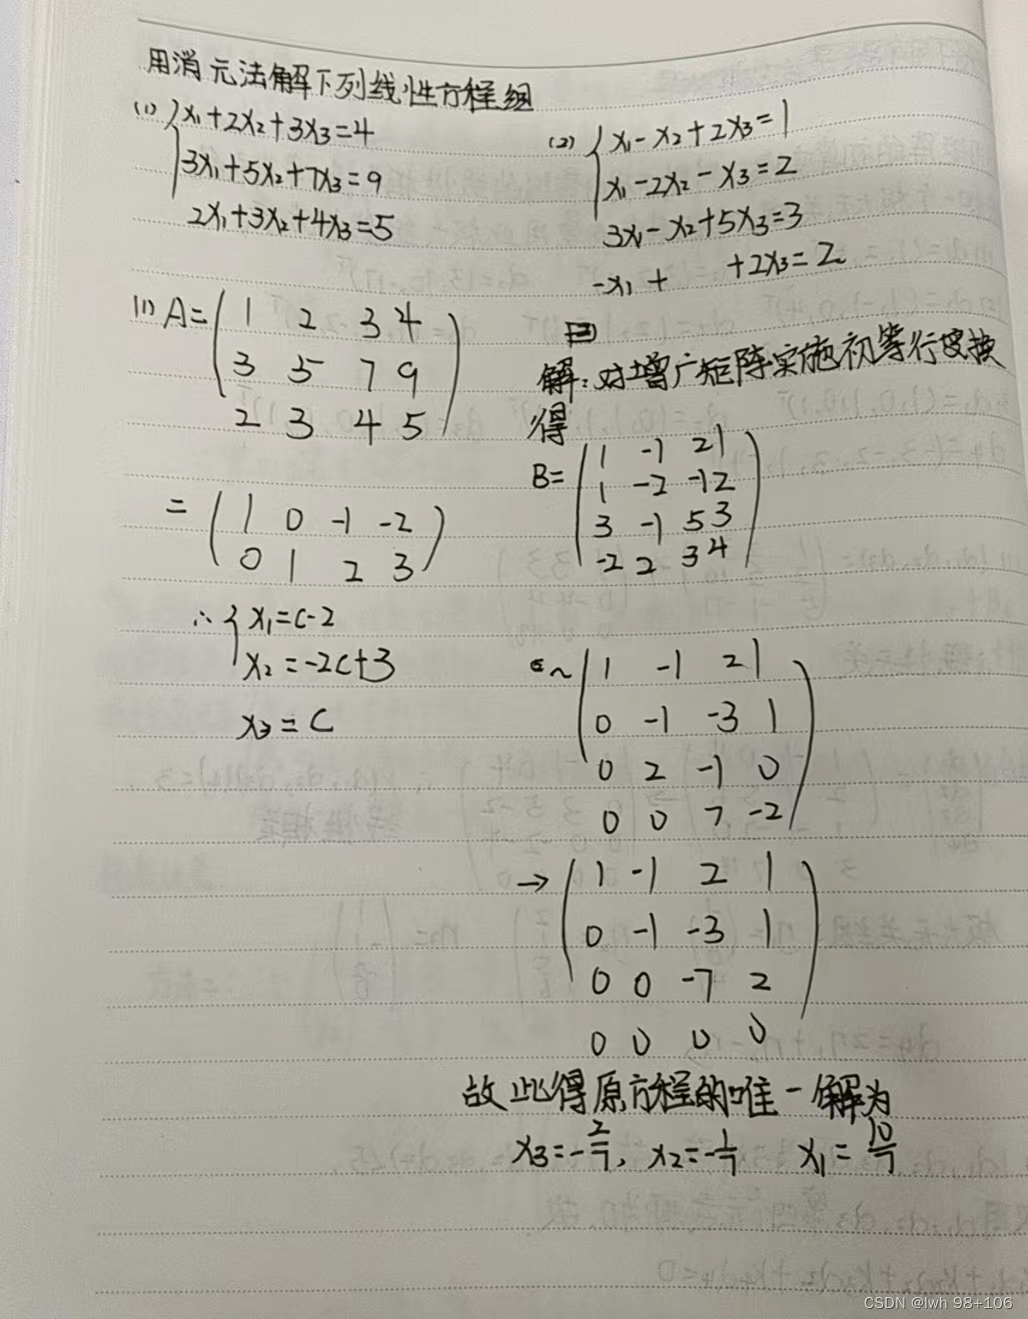 用消元法解下列线性方程组
(1) { x₁+2x₂+3x₃=4
3x₁+5x₂+7x₃=9
2x₁+3x₂+4x₃=5
(2) { x₁-x₂+2x₃=1
x₁-2x₂-x₃=2
3x₁-x₂+5x₃=3
-x₁+ +2x₃=2
(1) A= ( 1 2 3 4
3 5 7 9
2 3 4 5 )
= ( 1 0 -1 -2
0 1 2 3 )
∴ { x₁=c-2
x₂=-2c+3
x₃=c
解:对增广矩阵实施初等行变换
得
B= ( 1 -1 2 1
1 -2 -1 2
3 -1 5 3
-2 2 3 4 )
~ ( 1 -1 2 1
0 -1 -3 1
0 2 -1 0
0 0 7 -2 )
→ ( 1 -1 2 1
0 -1 -3 1
0 0 -7 2
0 0 0 0 )
故此得原方程的唯一解为
x₃=-2/7, x₂=-1/7 x₁=10/7
CSDN @lwh 98+106